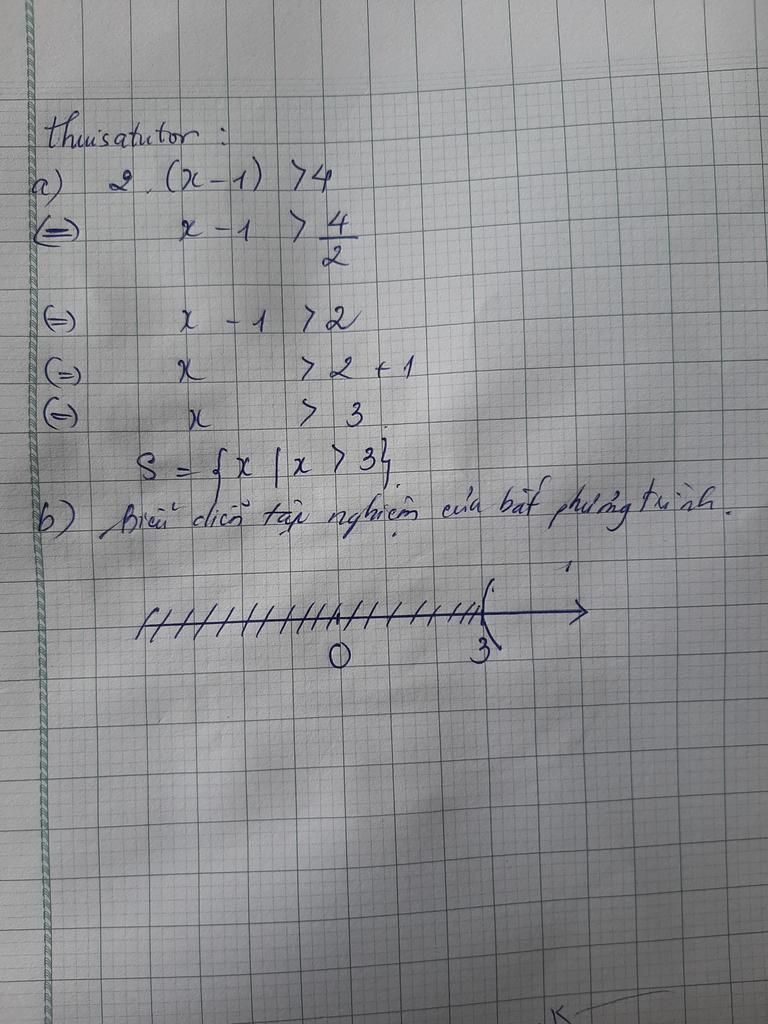 thuisatutor :
a) 2 . (x - 1) > 4
(=) x - 1 > 4/2
(=) x - 1 > 2
(=) x > 2 + 1
(=) x > 3
S = {x | x > 3}
b) Biểu diễn tập nghiệm của bất phương trình.
0 3